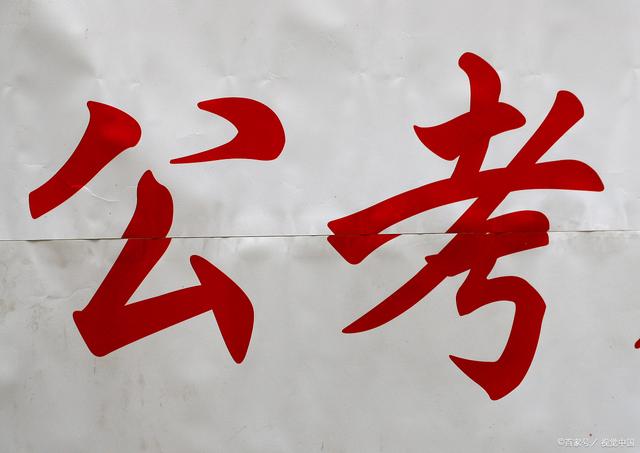 公考
©百家号／视觉中国